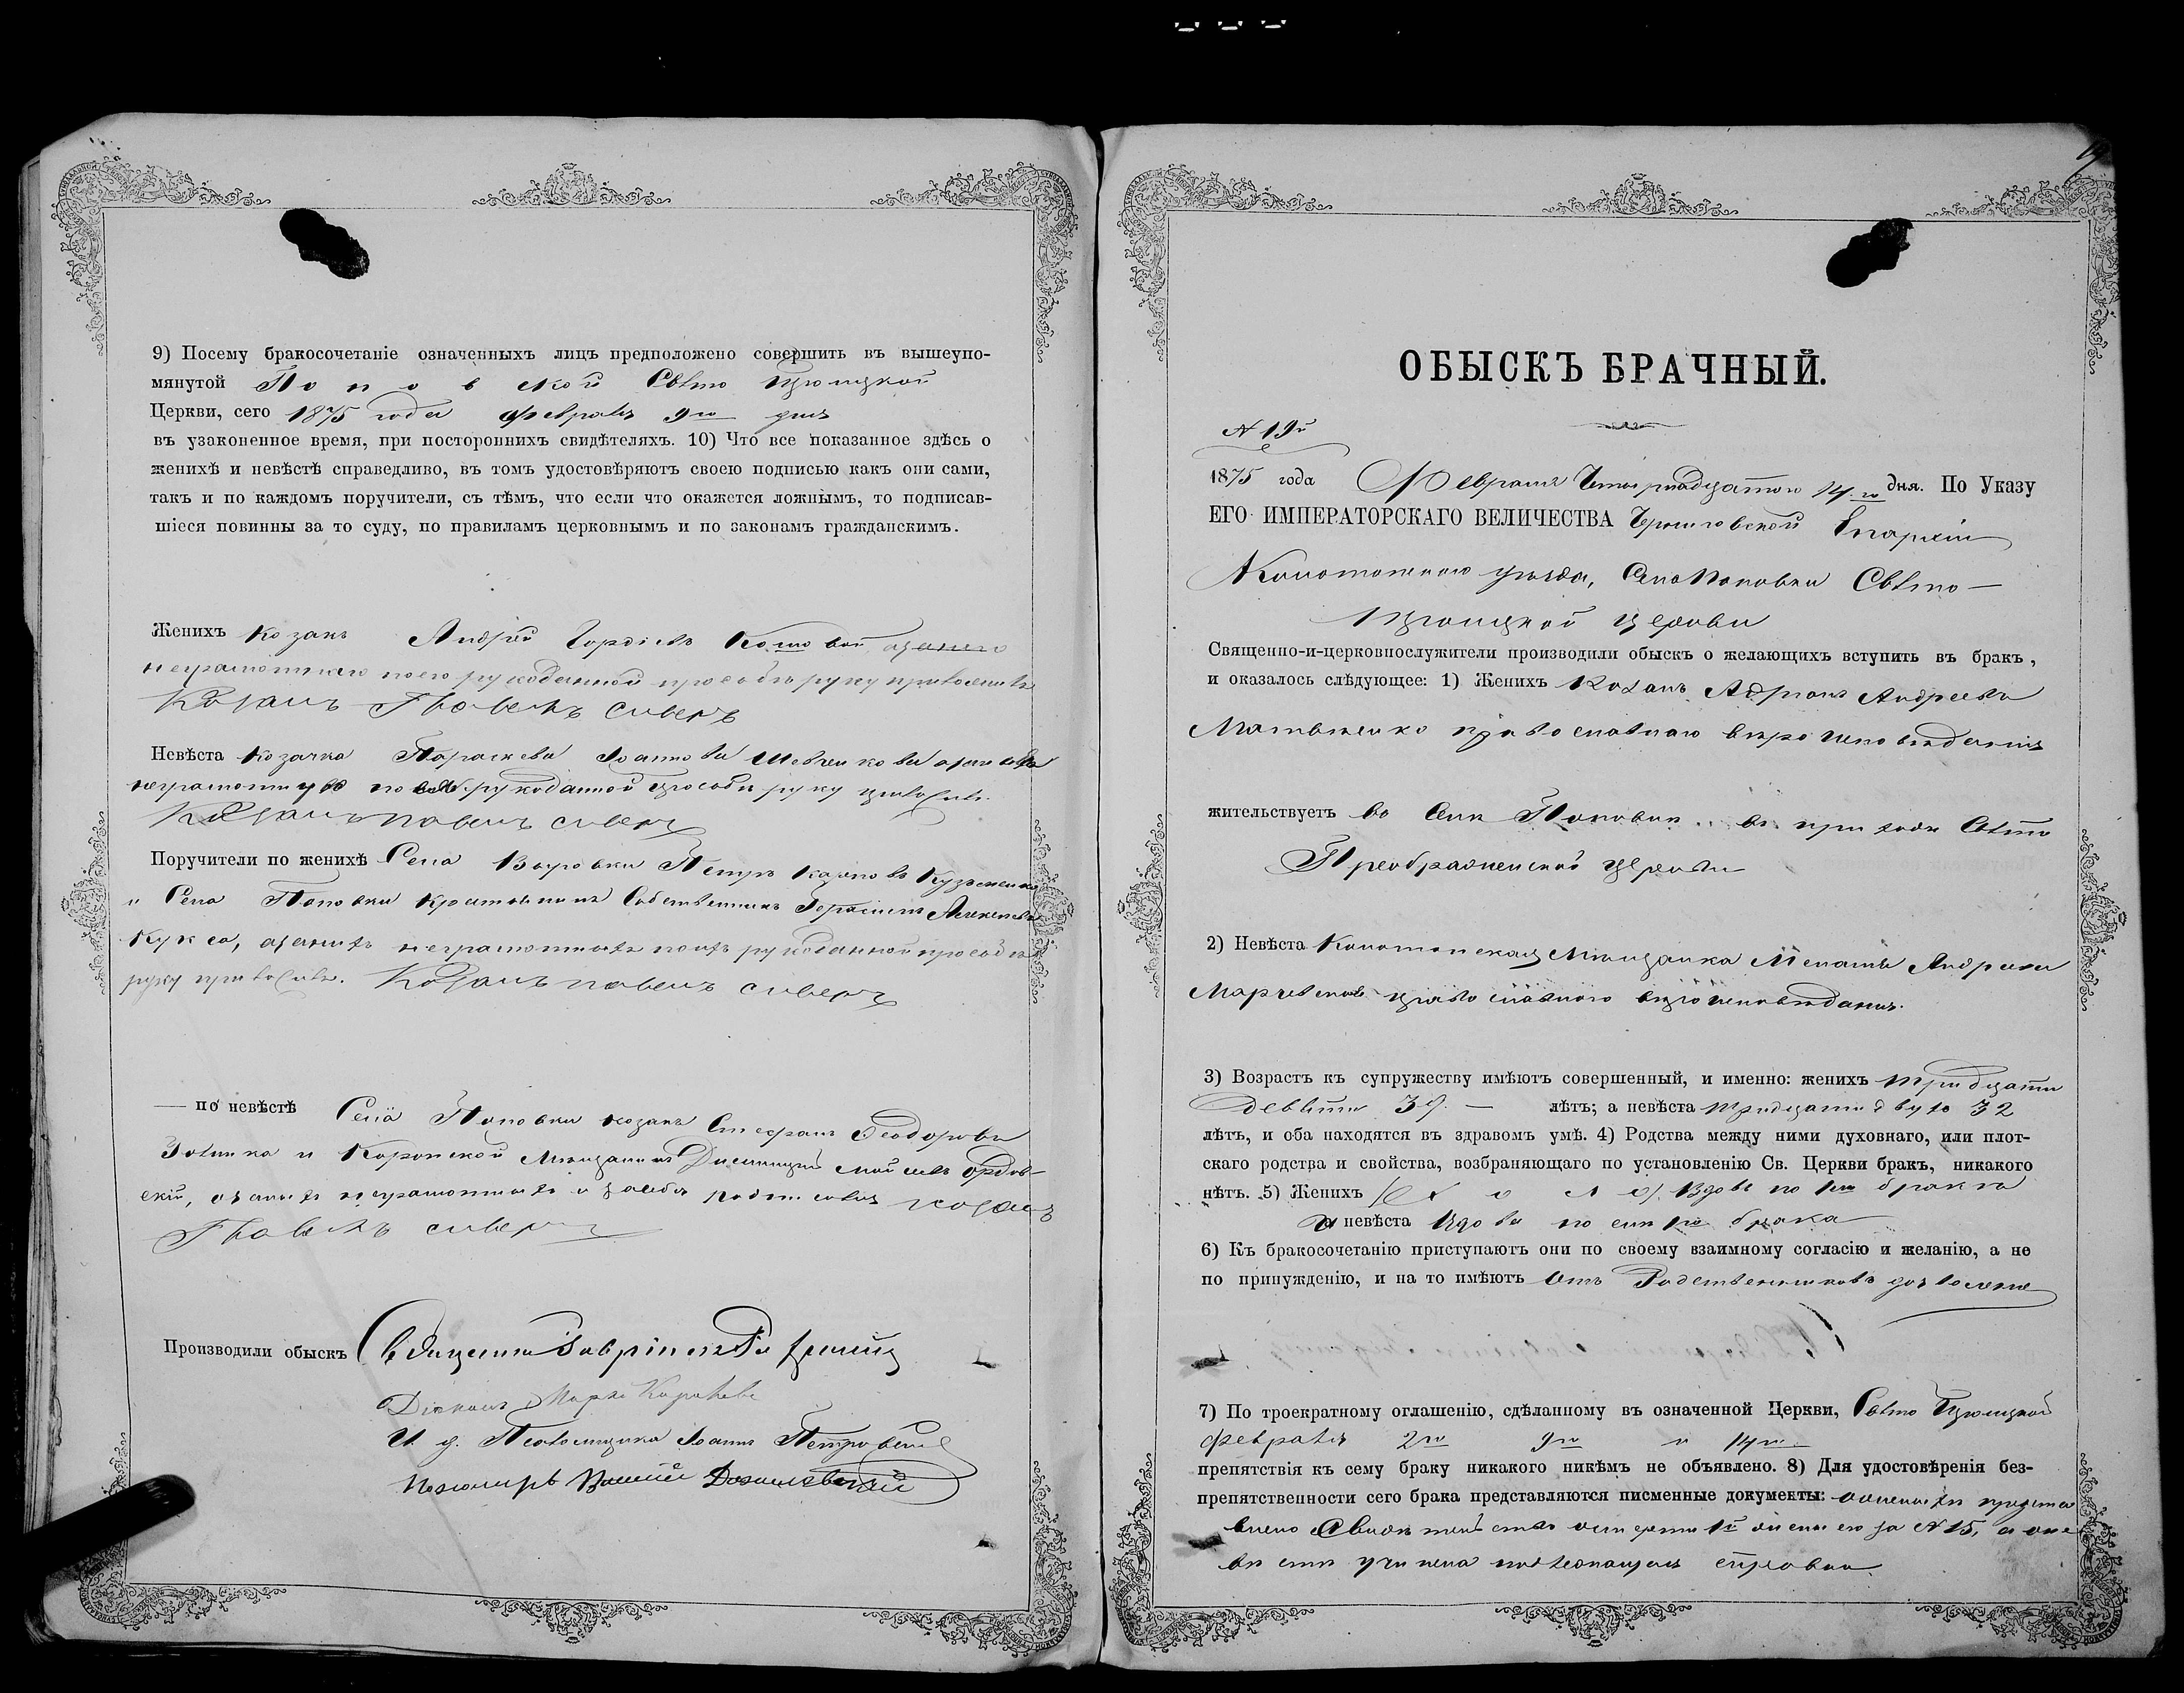 9) Посему бракосочетаніе означенныхъ лицъ предположено совершить въ вышеупо-
мянутой Поповской Свято Троицкой
Церкви, сего 1875 года февраля 9го дня
въ узаконенное время, при постороннихъ свидѣтеляхъ. 10) Что все показанное здѣсь о
женихѣ и невѣстѣ справедливо, въ томъ удостовѣряютъ своею подписью какъ они сами,
такъ и по каждомъ поручители, съ тѣмъ, что если что окажется ложнымъ, то подписав-
шіеся повинны за то суду, по правиламъ церковнымъ и по законамъ гражданскимъ.
Женихъ козакъ Андрей Гордіевъ
неграмотнаго по его рукоданной прозьбѣ руку приложилъ
Козакъ Павелъ сиверъ
Невѣста козачка Параскева Іоаннова Шевченкова а за нее
неграмотную по ея рукоданной прозьбѣ руку приложилъ
Козакъ павелъ сиверъ
Поручители по женихѣ Села Петръ Карповъ Кузьменко
и Села Поповки крестьянинъ Собственникъ Герасимъ Алексѣевъ
Кукса, а за нихъ неграмотныхъ по ихъ рукоданной прозьбѣ
руку приложилъ. Козакъ павелъ сиверъ
— по невѣстѣ Села Поповки козакъ Стефанъ Ѳеодоровъ
и Коропской мѣщанинъ Димитрій
скій, а за нихъ неграмотныхъ подписался козакъ
Павелъ сиверъ
Производили обыскъ Священникъ Гавріилъ
Діаконъ Маркъ
И. д. Псаломщика Іоаннъ Петровскій
Пономарь
ОБЫСКЪ БРАЧНЫЙ.
N 19й
1875 года Февраля Четырнадцатого 14го дня. По Указу
ЕГО ИМПЕРАТОРСКАГО ВЕЛИЧЕСТВА Черниговской Епархіи
Конотопского уѣзда, Села Поповки Свято-
Троицкой Церкви
Священно-и-церковнослужители производили обыскъ о желающихъ вступить въ бракъ,
и оказалось слѣдующее: 1) Женихъ Козакъ Адріанъ Андреевъ
Матвѣенко православнаго вѣроисповѣданія
жительствуетъ въ Селѣ Поповкѣ въ приходѣ Свято
Преображенской Церкви
2) Невѣста Конотопская Мѣщанка Меланія Андреева
православного вѣроисповѣданія.
3) Возрастъ къ супружеству имѣютъ совершенный, и именно: женихъ тридцати
девяти 39. — лѣтъ; а невѣста тридцати двухъ 32
лѣтъ, и оба находятся въ здравомъ умѣ. 4) Родства между ними духовнаго, или плот-
скаго родства и свойства, возбраняющаго по установленію Св. Церкви бракъ, никакого
нѣтъ. 5) Женихъ Вдовъ по 1мъ бракѣ
а невѣста Вдова послѣ 1го брака
6) Къ бракосочетанію приступаютъ они по своему взаимному согласію и желанію, а не
по принужденію, и на то имѣютъ отъ Родственниковъ дозволеніе
7) По троекратному оглашенію, сдѣланному въ означенной Церкви, Свято Троицкой
февраля 2го 9го и 14го
препятствія къ сему браку никакого никѣмъ не объявлено. 8) Для удостовѣренія без-
препятственности сего брака представляются писменные документы: о женихѣ представ
влено Свидѣтельство о смерти 1й жены его за N 15, а о не
вѣстѣ учинена надлежащая справка.